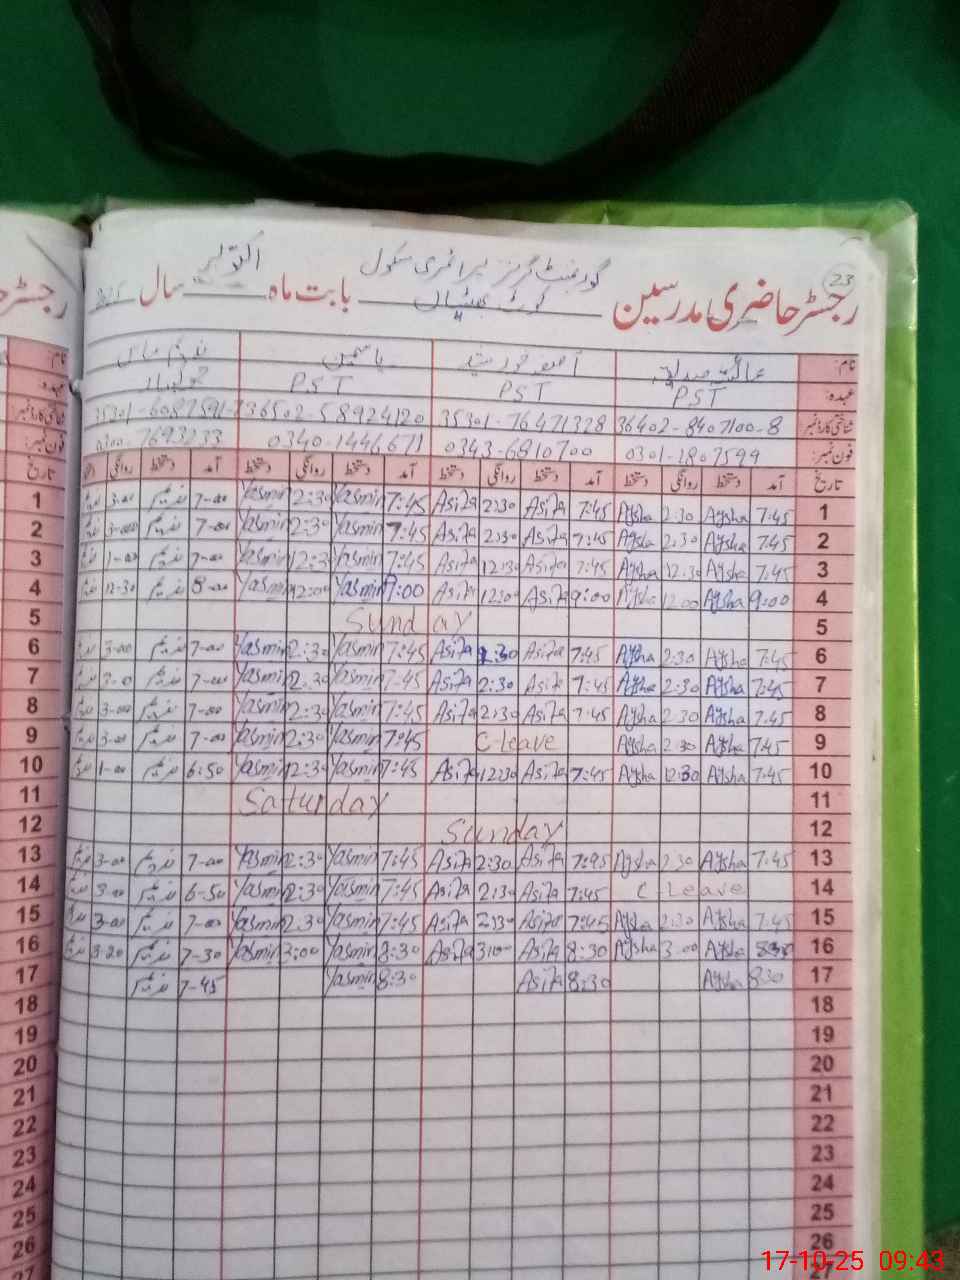 23
گورنمنٹ گرلز پرائمری سکول
رجسٹر حاضری مدرسین کوٹ بابت ماہ اکتوبر سال
نام: عائشہ یاسمین ندیم
عہدہ: PST PST PST
شناختی کارڈ نمبر 36402-8407100-8 35301-76471328 36502-58924120
فون نمبر: 0301-2807599 0343-6810700 0340-1446671 0300-7693233
تاریخ آمد دستخط روانگی دستخط آمد دستخط روانگی دستخط آمد دستخط روانگی دستخط آمد دستخط روانگی
1 7:45 Aysha 2:30 Aysha 7:45 Asifa 2:30 Asifa 7:45 Yasmin 2:30 Yasmin 7-00 ندیم 3-00 ندیم 1
2 7:45 Aysha 2:30 Aysha 7:45 Asifa 2:30 Asifa 7:45 Yasmin 2:30 Yasmin 7-00 ندیم 3-00 ندیم 2
3 7:45 Aysha 12:30 Aysha 7:45 Asifa 12:30 Asifa 7:45 Yasmin 12:30 Yasmin 7-00 ندیم 1-00 ندیم 3
4 9:00 Aysha 12:00 Aysha 9:00 Asifa 12:00 Asifa Yasmin 12:00 Yasmin 8-00 ندیم 12-30 ندیم 4
5 Sunday 5
6 7:45 Aysha 2:30 Aysha 7:45 Asifa 2:30 Asifa 7:45 Yasmin 2:30 Yasmin 7-00 ندیم 3-00 ندیم 6
7 7:45 Aysha 2:30 Aysha 7:45 Asifa 2:30 Asifa 7:45 Yasmin 2:30 Yasmin 7-00 ندیم ندیم 7
8 7:45 Aysha 2:30 Aysha 7:45 Asifa 2:30 Asifa 7:45 Yasmin 2:30 Yasmin 7-00 ندیم 3-00 ندیم 8
9 7:45 Aysha 2:30 Aysha C-leave 7:45 Yasmin 2:30 Yasmin 7-00 ندیم 3-00 ندیم 9
10 7:45 Aysha 12:30 Aysha 7:45 Asifa 12:30 Asifa 7:45 Yasmin 12:30 Yasmin 6:50 ندیم 1-00 ندیم 10
11 Saturday 11
12 Sunday 12
13 7:45 Aysha 2:30 Aysha 7:45 Asifa 2:30 Asifa 7:45 Yasmin 2:30 Yasmin 7-00 ندیم 3-00 ندیم 13
14 C Leave 7:45 Asifa 2:30 Asifa 7:45 Yasmin 2:30 Yasmin 6-50 ندیم 3-00 ندیم 14
15 7:45 Aysha 2:30 Aysha 7:45 Asifa 2:30 Asifa 7:45 Yasmin 2:30 Yasmin 7-00 ندیم 3-00 ندیم 15
16 Aysha 3:00 Aysha 8:30 Asifa 3:00 Asifa 8:30 Yasmin 3:00 Yasmin 7-30 ندیم 3-20 ندیم 16
17 830 Aysha 8:30 Asifa 8:30 Yasmin 7-45 ندیم 17
18 18
19 19
20 20
21 21
22 22
23 23
24 24
25 25
26 26
27
17-10-25 09:43